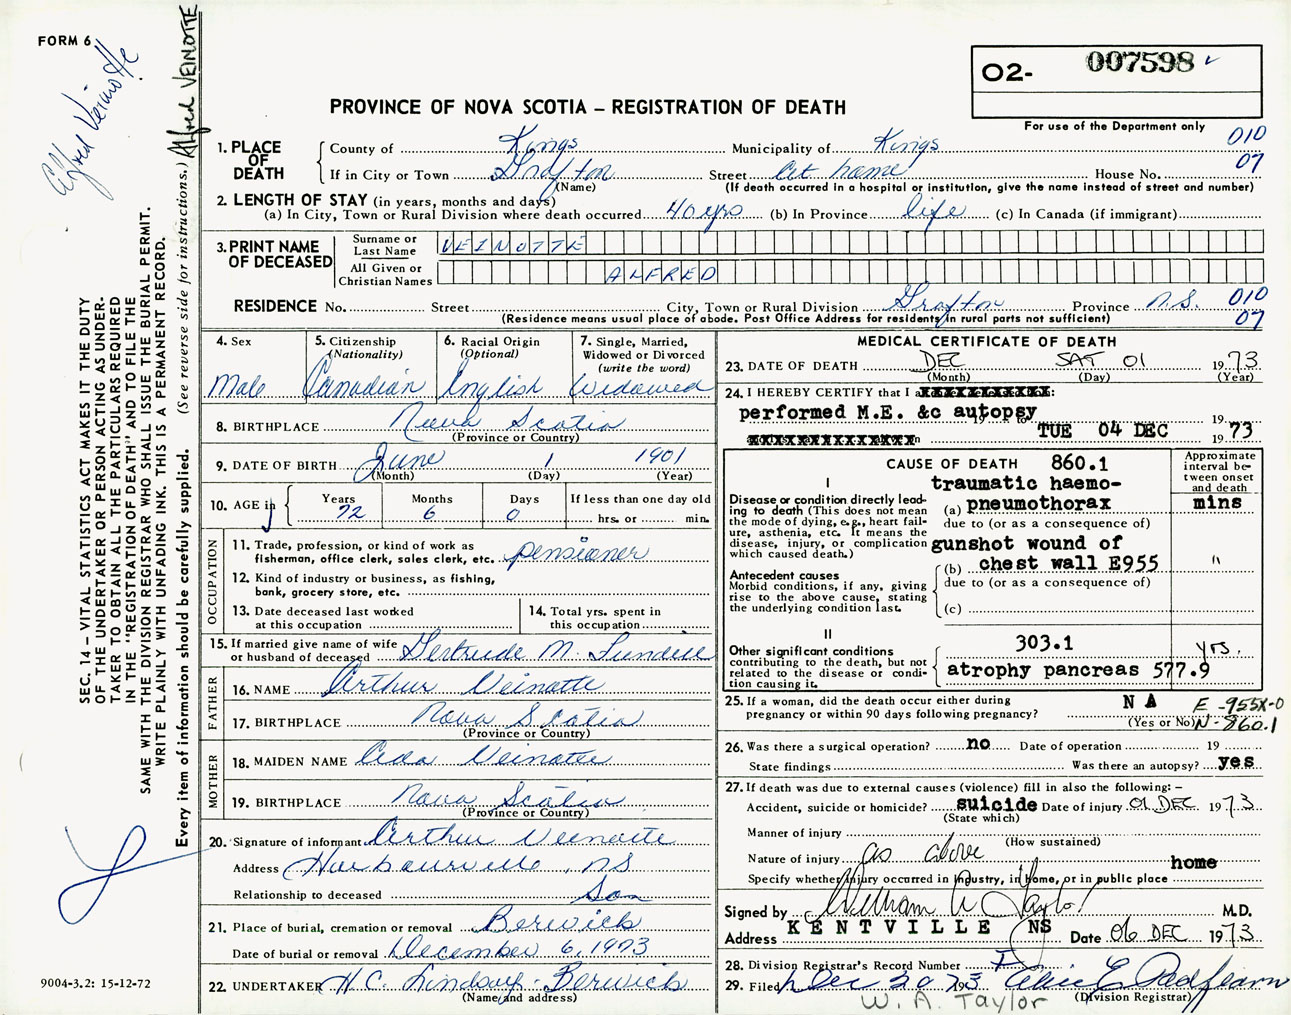 FORM 6
Alfred Veinotte
Alfred VEINOTTE
SEC. 14 – VITAL STATISTICS ACT MAKES IT THE DUTY
OF THE UNDERTAKER OR PERSON ACTING AS UNDER-
TAKER TO OBTAIN ALL THE PARTICULARS REQUIRED
IN THE "REGISTRATION OF DEATH" AND TO FILE THE
SAME WITH THE DIVISION REGISTRAR WHO SHALL ISSUE THE BURIAL PERMIT.
WRITE PLAINLY WITH UNFADING INK. THIS IS A PERMANENT RECORD.
Every item of information should be carefully supplied. (See reverse side for instructions.)
9004-3.2: 15-12-72
O2- 007598
For use of the Department only
PROVINCE OF NOVA SCOTIA – REGISTRATION OF DEATH
010
07
1. PLACE OF DEATH
County of Kings Municipality of Kings
If in City or Town Grafton Street At home House No.
(Name) (If death occurred in a hospital or institution, give the name instead of street and number)
2. LENGTH OF STAY (in years, months and days)
(a) In City, Town or Rural Division where death occurred 40 yrs (b) In Province life (c) In Canada (if immigrant)
3. PRINT NAME OF DECEASED
Surname or Last Name VEINOTTE
All Given or Christian Names ALFRED
RESIDENCE No. Street City, Town or Rural Division Grafton Province N.S. 010
07
(Residence means usual place of abode. Post Office Address for residents in rural parts not sufficient)
4. Sex Male
5. Citizenship (Nationality) Canadian
6. Racial Origin (Optional) English
7. Single, Married, Widowed or Divorced (write the word) Widowed
8. BIRTHPLACE Nova Scotia
(Province or Country)
9. DATE OF BIRTH June 1 1901
(Month) (Day) (Year)
10. AGE in Years 72 Months 6 Days 0 If less than one day old
hrs. or min.
OCCUPATION
11. Trade, profession, or kind of work as
fisherman, office clerk, sales clerk, etc. pensioner
12. Kind of industry or business, as fishing,
bank, grocery store, etc.
13. Date deceased last worked
at this occupation
14. Total yrs. spent in
this occupation
15. If married give name of wife
or husband of deceased Gertrude M.
FATHER
16. NAME Arthur Veinotte
17. BIRTHPLACE Nova Scotia
(Province or Country)
MOTHER
18. MAIDEN NAME Ada Veinotte
19. BIRTHPLACE Nova Scotia
(Province or Country)
20. Signature of informant Arthur Veinotte
Address Harbourville, NS
Relationship to deceased Son
21. Place of burial, cremation or removal Berwick
Date of burial or removal December 6, 1973
22. UNDERTAKER H.C. Lindsay - Berwick
(Name and address)
MEDICAL CERTIFICATE OF DEATH
23. DATE OF DEATH DEC SAT 01 1973
(Month) (Day) (Year)
24. I HEREBY CERTIFY that I
performed M.E. &c autopsy 19
TUE 04 DEC 1973
CAUSE OF DEATH 860.1
Approximate interval between onset and death
I
Disease or condition directly lead-
ing to death (This does not mean
the mode of dying, e.g., heart fail-
ure, asthenia, etc. It means the
disease, injury, or complication
which caused death.)
traumatic haemo-
(a) pneumothorax mins
due to (or as a consequence of)
gunshot wound of
(b) chest wall E955 "
due to (or as a consequence of)
(c)
Antecedent causes
Morbid conditions, if any, giving
rise to the above cause, stating
the underlying condition last.
II
Other significant conditions
contributing to the death, but not
related to the disease or condi-
tion causing it.
303.1 yrs.
atrophy pancreas 577.9
25. If a woman, did the death occur either during
pregnancy or within 90 days following pregnancy? NA
(Yes or No)
E-955X-0
N-860.1
26. Was there a surgical operation? no Date of operation 19
State findings Was there an autopsy? yes
27. If death was due to external causes (violence) fill in also the following: –
Accident, suicide or homicide? suicide Date of injury 01 DEC 1973
(State which)
Manner of injury
(How sustained)
Nature of injury as above
Specify whether injury occurred in industry, in home, or in public place home
Signed by William A Taylor M.D.
Address KENTVILLE NS Date 06 DEC 1973
28. Division Registrar's Record Number
29. Filed Dec 20 1973
(Division Registrar)
W. A. Taylor